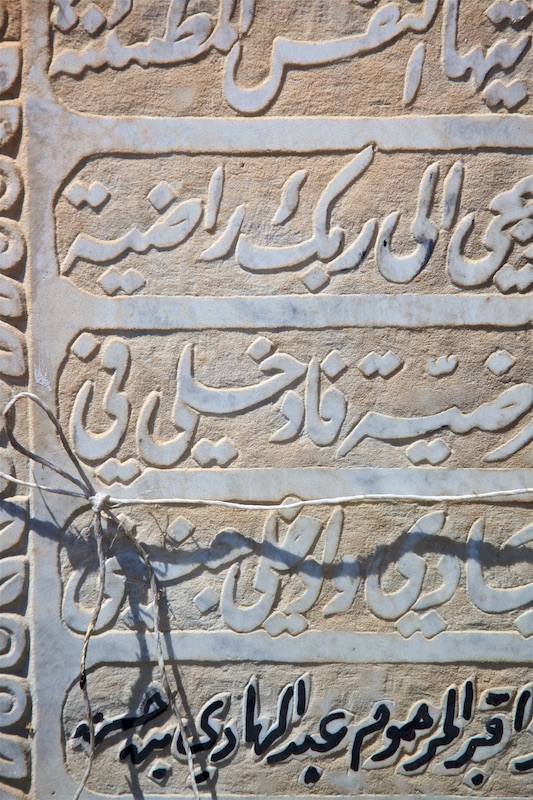 يتها النفس المطمئنة
جعي الى ربك راضية
رضية فادخلي في
عبادي وادخلي جنتي
قبر المرحوم عبد الهادي بن حسن